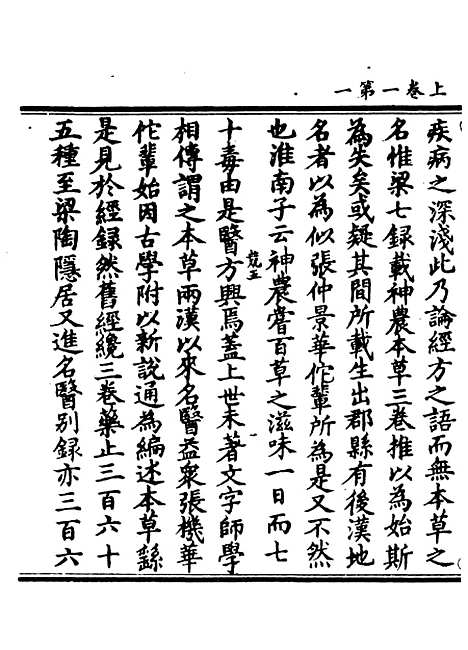 上卷一第一
疾病之深淺此乃論經方之語而無本草之
名惟梁七録載神農本草三卷推以為始斯
為失矣或疑其間所載生出郡縣有後漢地
名者以為似張仲景華佗輩所為是又不然
也淮南子云神農嘗百草之滋味一日而七
十毒由是醫方興焉蓋上世未著文字師學
相傳謂之本草兩漢以來名醫益衆張機華
佗輩始因古學附以新說通為編述本草繇
是見於經録然舊經纔三卷藥止三百六十
五種至梁陶隱居又進名醫別録亦三百六